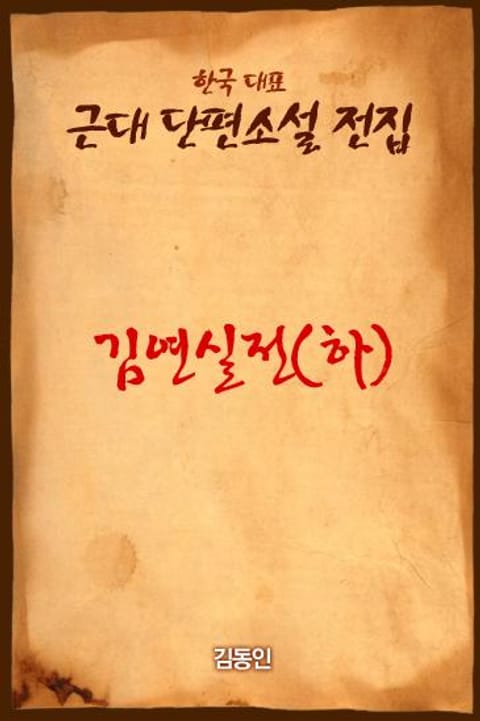 한국 대표
근대 단편소설 전집
김연실전(하)
김동인